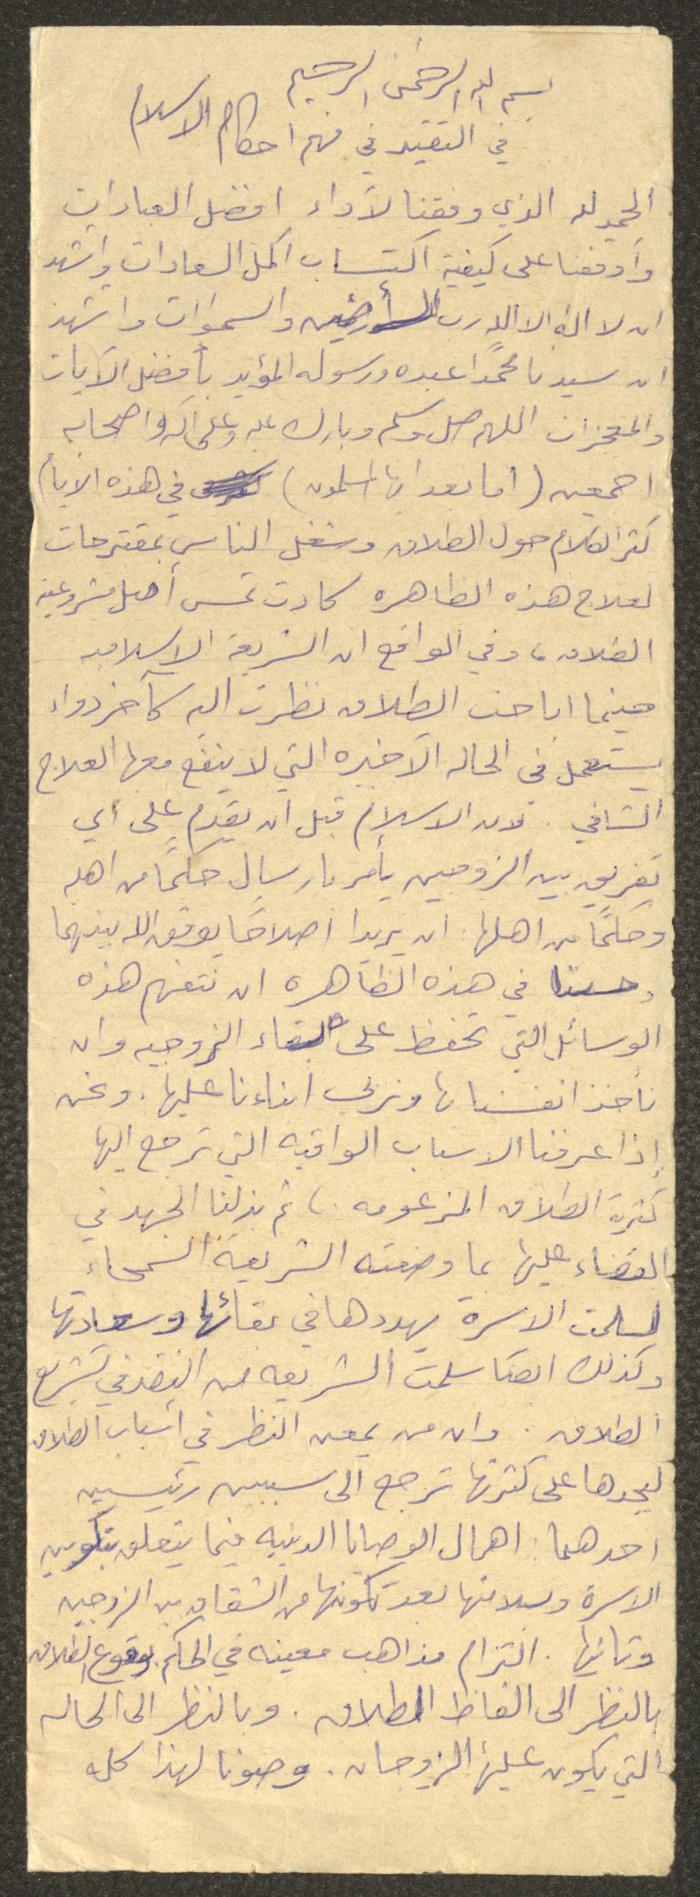 بسم الله الرحمن الرحيم
في التقيد في فهم احكام الاسلام
الحمد لله الذي وفقنا لآداء افضل العبادات
وأوقفنا على كيفية اكتساب اكمل السعادات واشهد
ان لا اله الا الله رب الأرضين والسموات واشهد
ان سيدنا محمدًا عبده ورسوله المؤيد بأفضل الآيات
والمعجزات اللهم صل وسلم وبارك عليه وعلى آله واصحابه
اجمعين (اما بعد ايها المسلمون) في هذه الايام
كثر الكلام حول الطلاق وشغل الناس بمقترحات
لعلاج هذه الظاهره كادت تمس أصل مشروعية
الطلاق، وفي الواقع ان الشريعة الاسلاميه
حينما اباحت الطلاق نظرت اليه كآخر دواء
يستعمل في الحاله الآخيره التي لا ينفع معها العلاج
الشافي. فان الاسلام قبل ان يقدم على أي
تفريق بين الزوجين يأمر بارسال حكمًا من اهله
وحكمًا من اهلها. ان يريدا اصلاحًا يوفق الله بينهما
وحسبنا في هذه الظاهره ان نتفهم هذه
الوسائل التي تحفظ على بقاء الزوجيه وان
نأخذ انفسنا بها ونربي ابناءنا عليها. ونحن
إذا عرفنا الاسباب الواقيه التي ترجع اليها
كثرة الطلاق المزعومه.) ثم بذلنا الجهد في
القضاء عليها بما وضعته الشريعة السمحاء
لسلمت الاسرة يهددها في بقائها وسعادتها
وكذلك ايضًا سلمت الشريعه من النقد في تشريع
الطلاق. وان من يمعن النظر في أسباب الطلاق
ليجدها على كثرتها ترجع الى سببين رئيسيين
احدهما: اهمال الوصايا الدينيه فيما يتعلق بتكوين
الاسرة وسلامتها بعد تكوينها من الشقاق بين الزوجين
وثانيها. التزام مذاهب معينه في الحكم بوقوع الطلاق
بالنظر الى الفاظ الطلاق. وبالنظر الى الحاله
التي يكون عليها الزوجان. وصونا لهذا كله